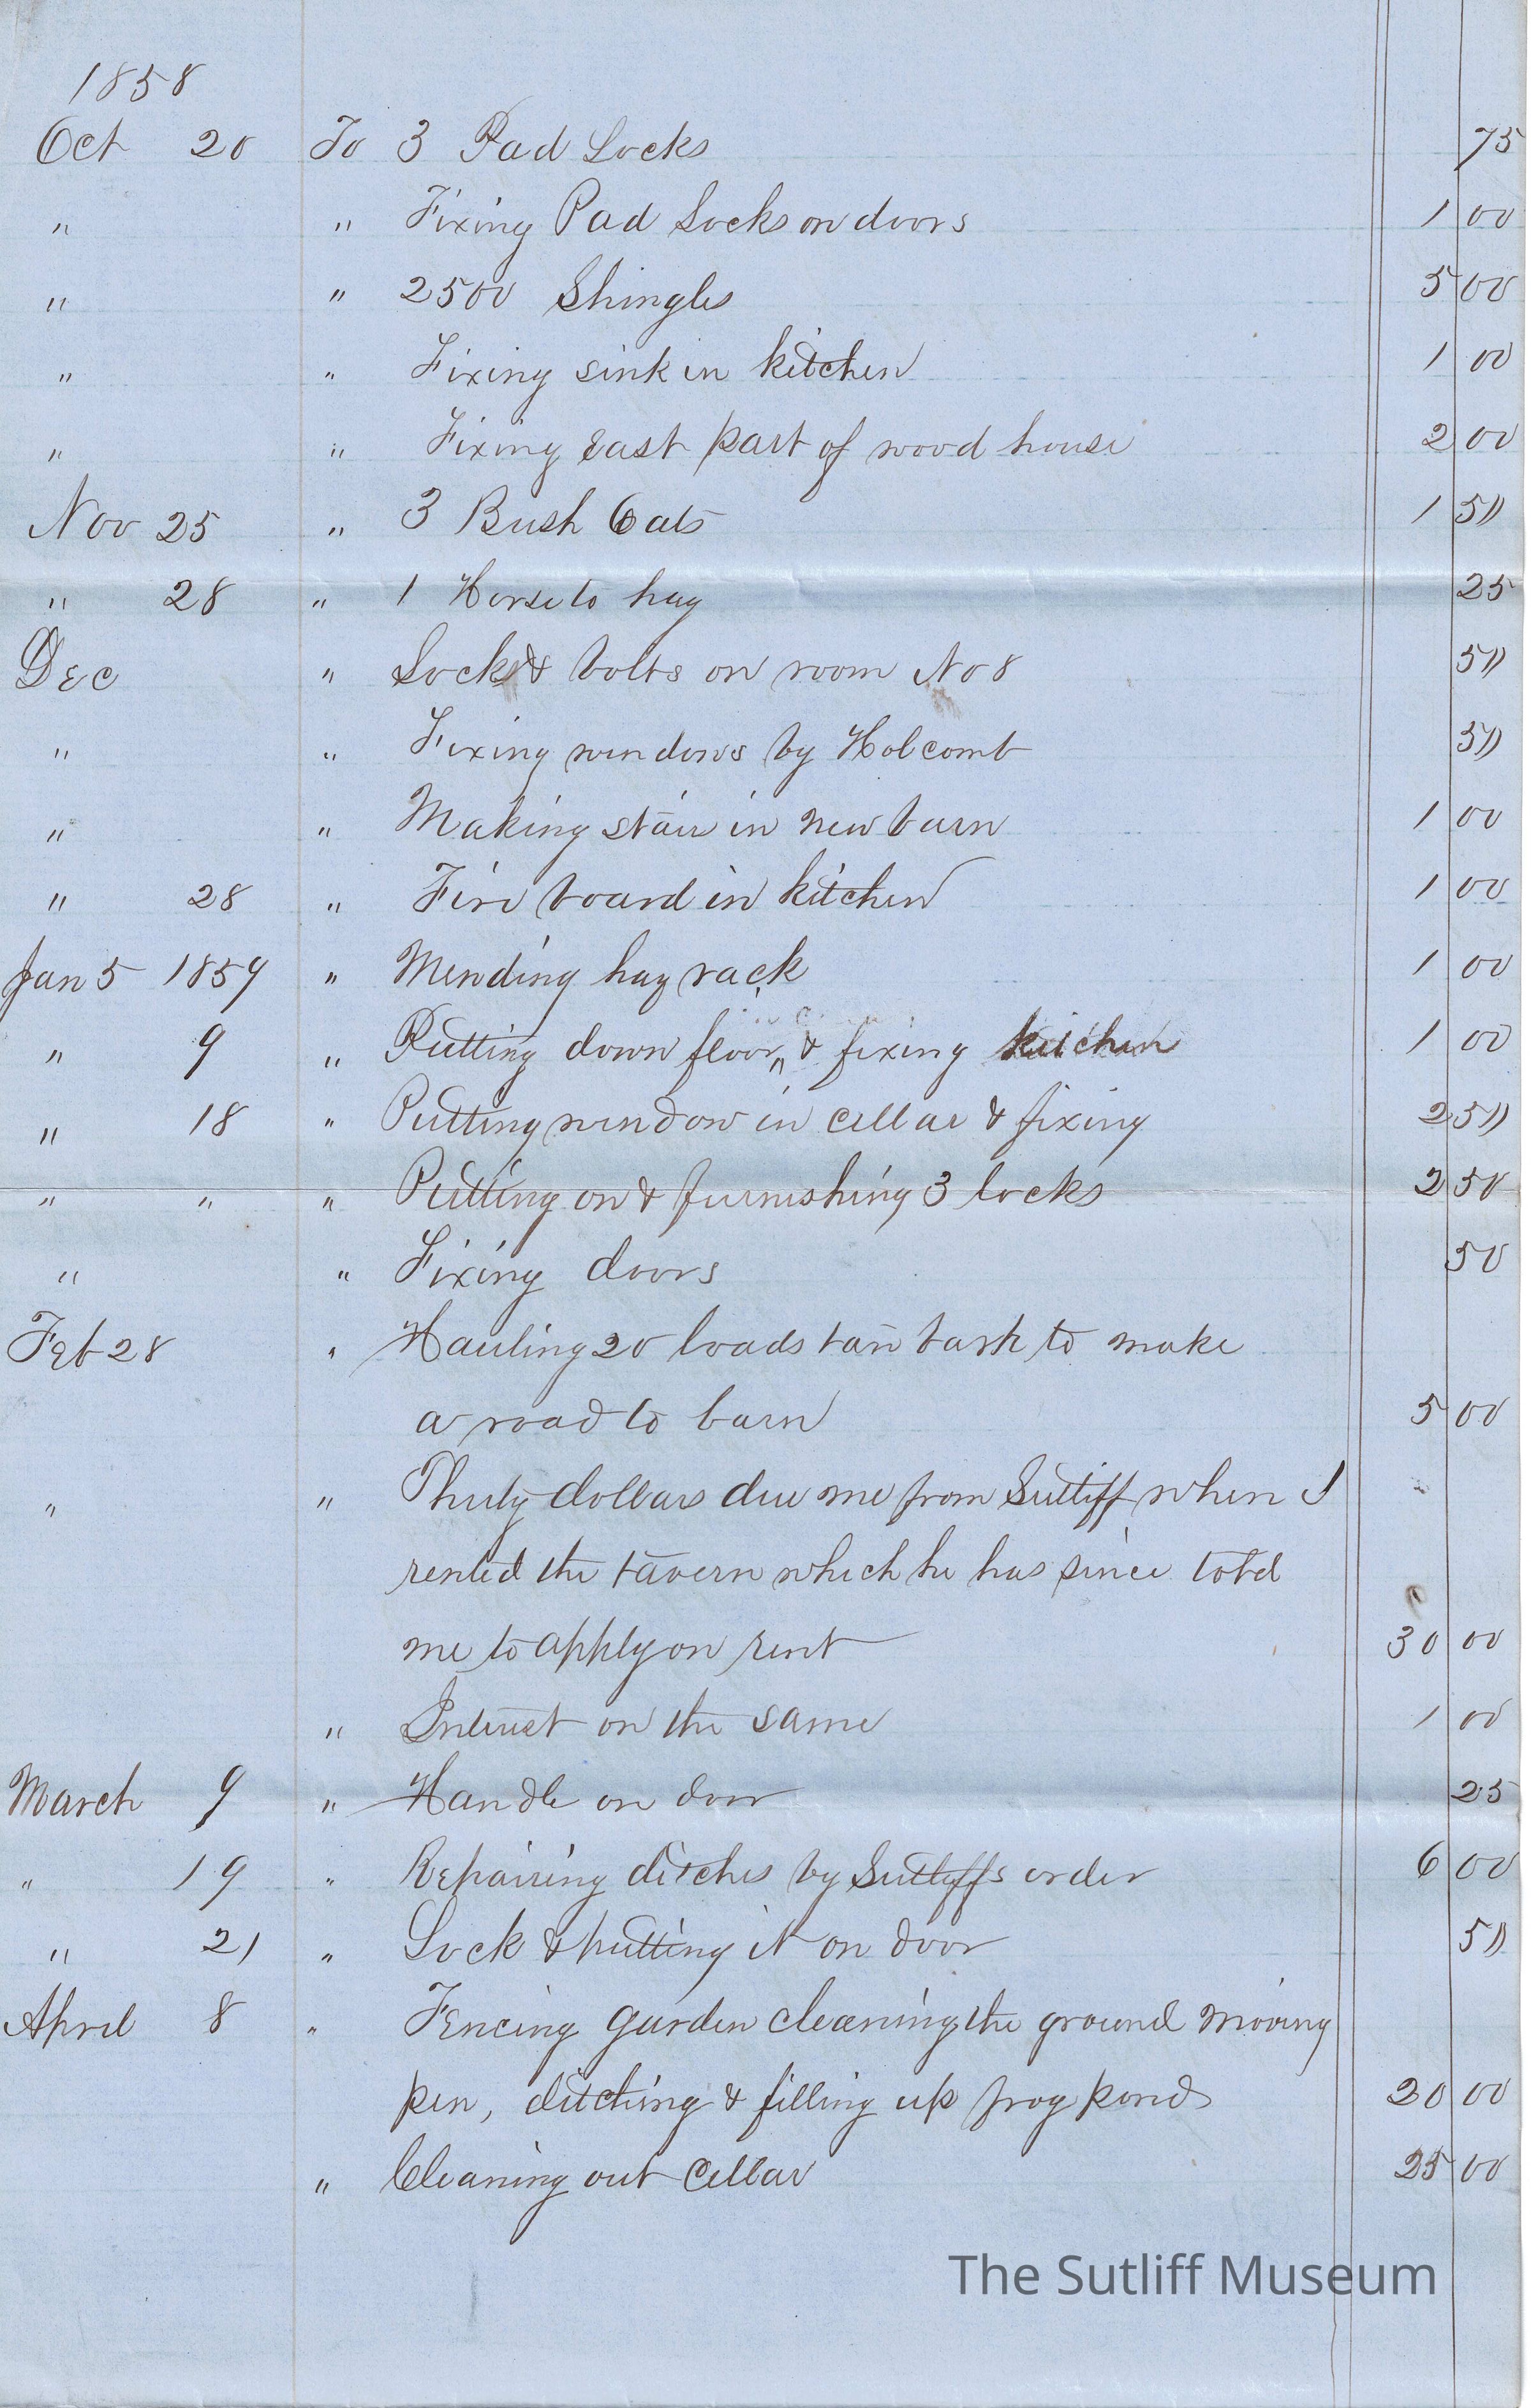 1858
Oct 20 To 3 Pad Locks 75
" " Fixing Pad Locks on doors 1 00
" " 2500 Shingles 5 00
" " Fixing sink in kitchen 1 00
" " Fixing East part of wood house 2 00
Nov 25 " 3 Bush Oats 1 50
" 28 " 1 Horse to hay 25
Dec " Locks & bolts on room No 8 50
" " Fixing windows by Holcomb 50
" " Making stair in new barn 1 00
" 28 " Fire board in kitchen 1 00
Jan 5 1859 " Mending hay rack 1 00
" 9 " Putting down floor & fixing kitchen 1 00
" 18 " Putting window in cellar & fixing 2 50
" " " Putting on & furnishing 3 locks 2 50
" " Fixing doors 50
Feb 28 " Hauling 20 loads tan bark to make
a road to barn 5 00
" " Thirty dollars due me from Sutliff when I
rented the tavern which he has since told
me to apply on rent 30 00
" Interest on the same 1 00
March 9 " Handle on door 25
" 19 " Repairing ditches by Sutliffs order 6 00
" 21 " Lock & putting it on door 50
April 8 " Fencing garden cleaning the ground moving
pen, ditching & filling up frog pond 20 00
" Cleaning out Cellar 25 00
The Sutliff Museum